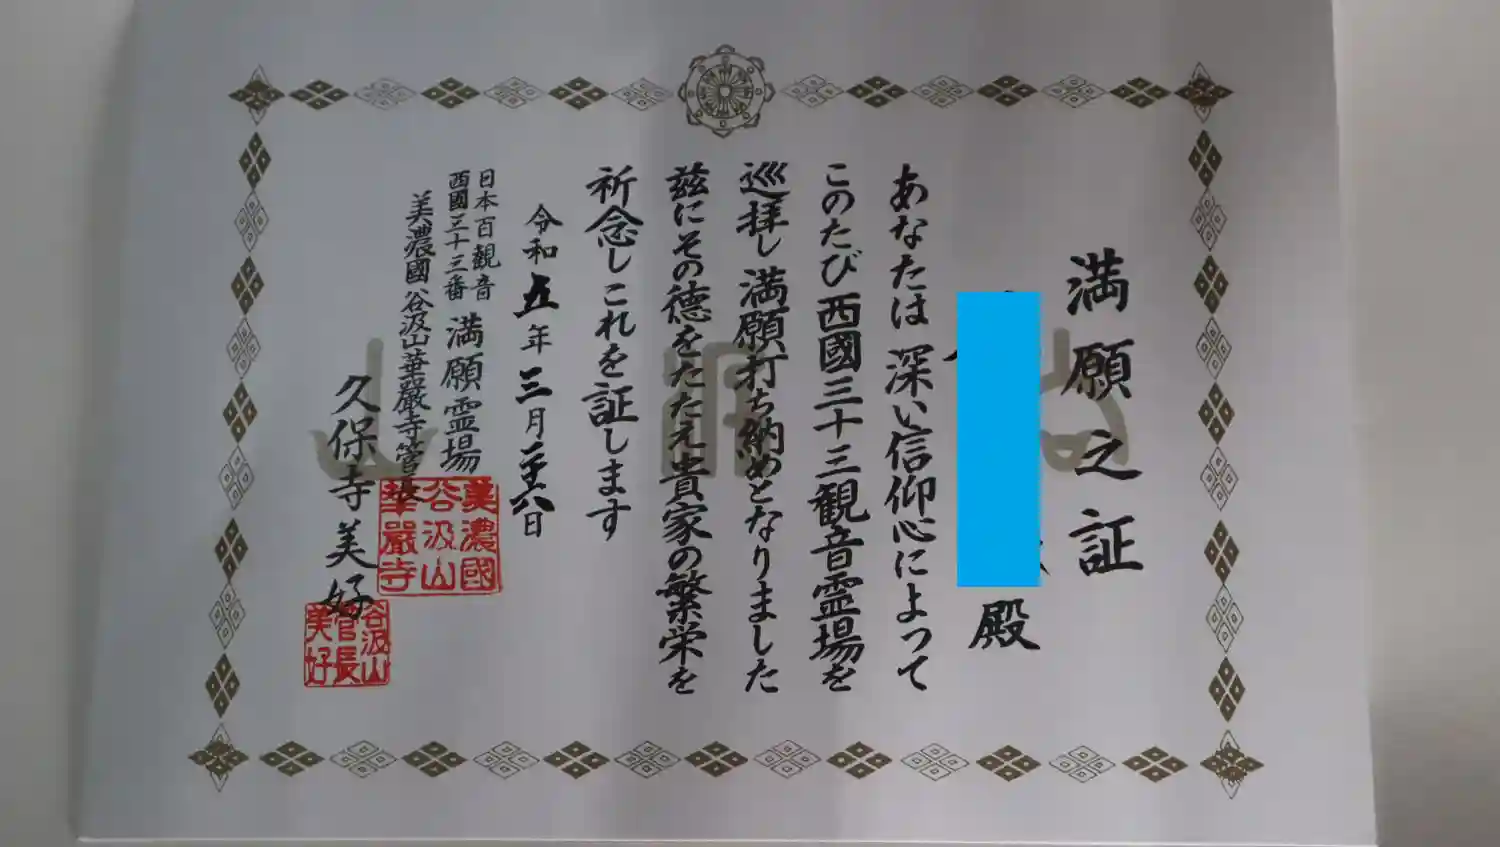 満願之証
殿
あなたは深い信仰心によって
このたび西國三十三観音霊場を
巡拝し満願打ち納めとなりました
茲にその徳をたたえ貴家の繁栄を
祈念しこれを証します
令和五年三月二十六日
日本百観音
西國三十三番
満願霊場
美濃國谷汲山華厳寺管長
久保寺美好
美濃國
谷汲山
華嚴寺
谷汲山
管長
美好